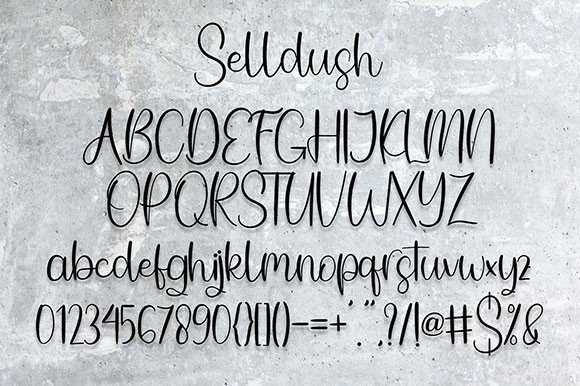 Selldush
ABCDEFGHIJKLMN
OPQRSTUVWXYZ
abcdefghijklmnopqrstuvwxyz
01234567890{}[]()-=+'".,?/|!@#$%&